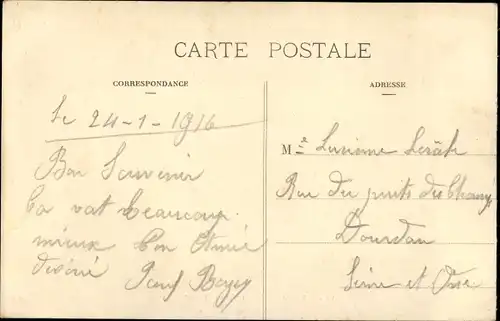 CARTE POSTALE
CORRESPONDANCE
Le 24-1-1916
Bon Souvenir
Ca vat beaucoup
mieux Ton Amie
désiré
ADRESSE
Mle Lucienne
Rue du puits des Champs
Dourdan
Seine et Oise